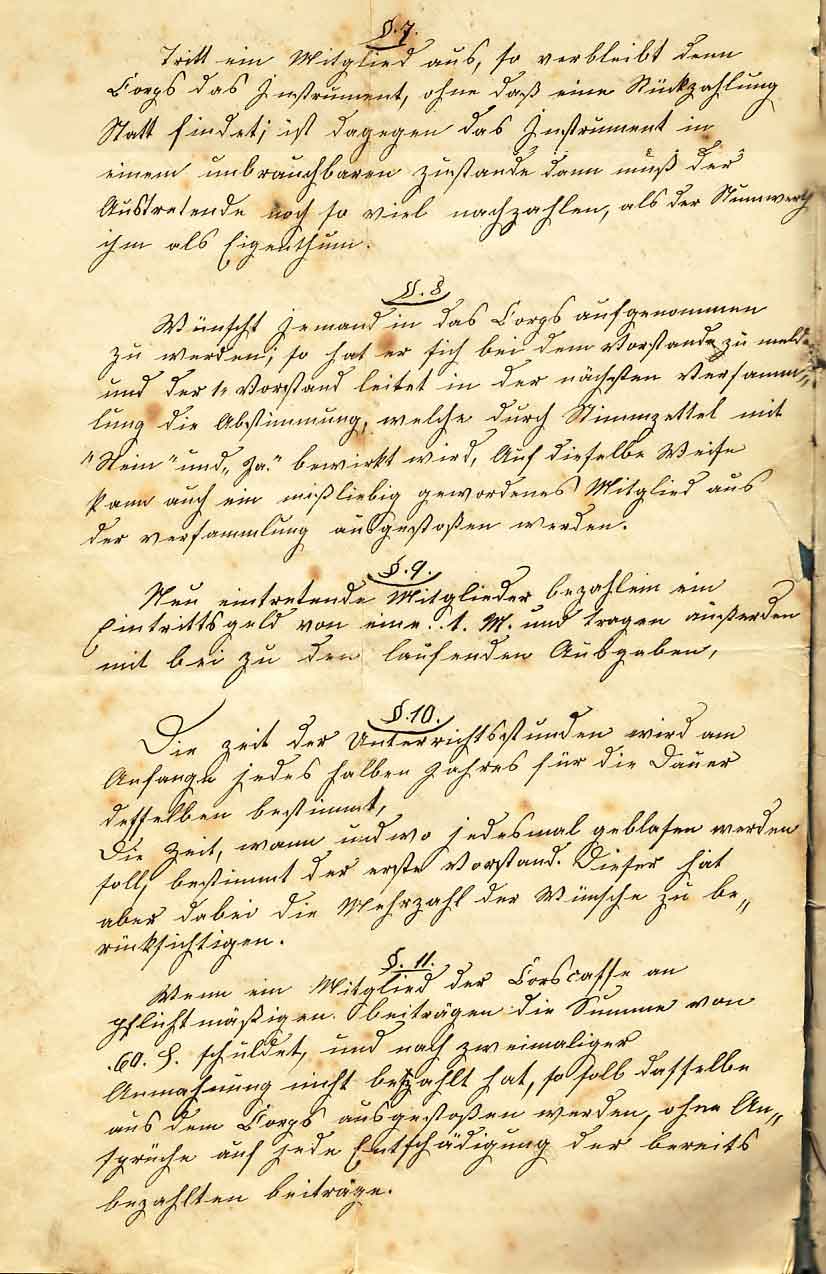 §. 7.
Tritt ein Mitglied aus, so verbleibt denn
Corps das Instrument, ohne daß eine Rückzahlung
Statt findet; ist dagegen das Instrument in
einem unbrauchbaren zustande dann muß der
Austretende noch so viel nachzahlen, als der
ihm als Eigenthum.
§. 8.
Wünscht jemand in das Corps aufgenommen
zu werden; so hat er sich bei dem Vorstande zu meld
und der 1te Vorstand leitet in der nächsten Versamm„
lung die Abstimmung, welche durch Stimmzettel mit
"Nein" und „Ja." bewirkt wird, Auf dieselbe Weise
kann auch ein mißliebig gewordenes Mitglied aus
der versammlung ausgestoßen werden.
§. 9.
Neu eintretende Mitglieder bezahlein ein
Eintrittsgeld von eine. . 1. M. und tragen außerden
mit bei zu den laufenden Ausgaben,
§. 10.
Die zeit der Unterrichtsstunden wird am
Anfange jedes halben Jahres für die Dauer
desselben bestimmt,
Die Zeit, wann und wo jedesmal geblasen werden
soll, bestimmt der erste Vorstand. Dieser hat
aber dabei die Mehrzahl der Wünsche zu be„
rücksichtigen.
§. 11.
Wenn ein Mitglied der Corscasse an
pflichtmäßigen. beiträgen die Summe von
.60. schuldet, und nach zweimaliger
Anmahnung nicht bezahlt hat, so soll dasselbe
aus dem Corps ausgestoßen werden, ohne An„
sprüche auf jede Entschädigung der bereits
bezahlten beiträge.